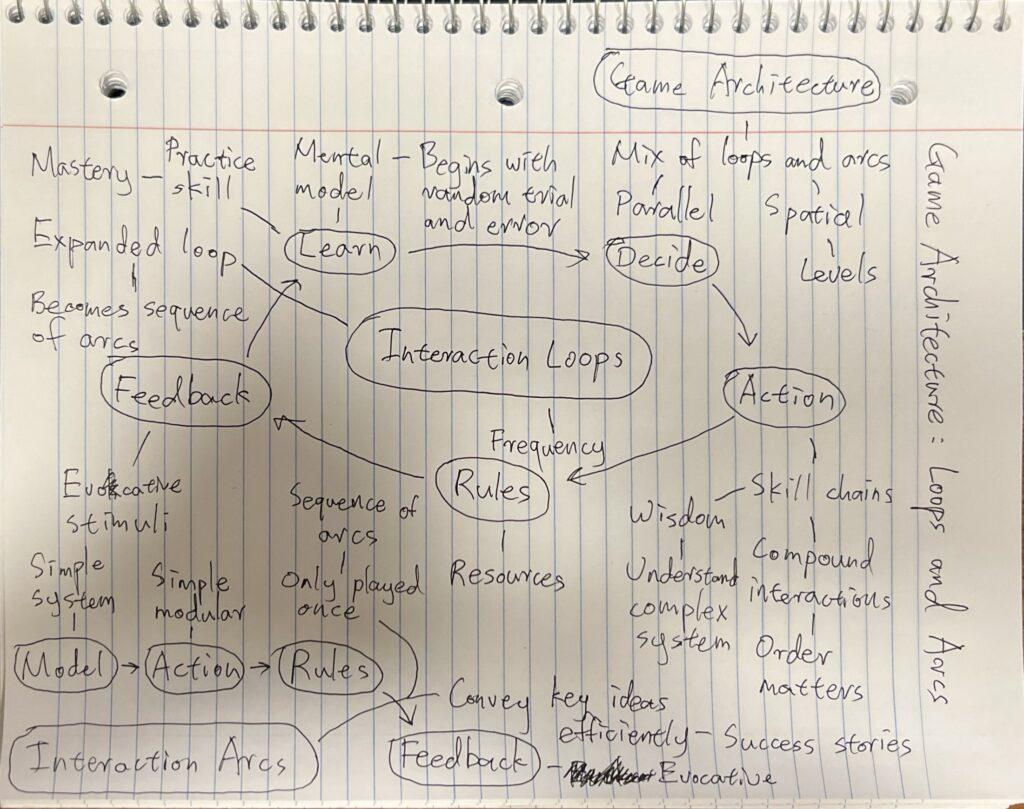 Game Architecture
Mix of loops and arcs
Parallel
Spatial
Levels
Game Architecture: Loops and Arcs
Mastery - Practice
skill
Mental - Begins with
model random trial
and error
Expanded loop
Becomes sequence
of arcs
Learn
Decide
Interaction Loops
Feedback
Action
Frequency
Rules
Evocative
stimuli
Resources
Skill chains
Wisdom
Understand
complex
system
Compound
interactions
Order
matters
Sequence of
arcs
Only played
once
Simple
system
Simple
modular
Model
Action
Rules
Feedback
Evocative
Interaction Arcs
Convey key ideas
efficiently - Success stories